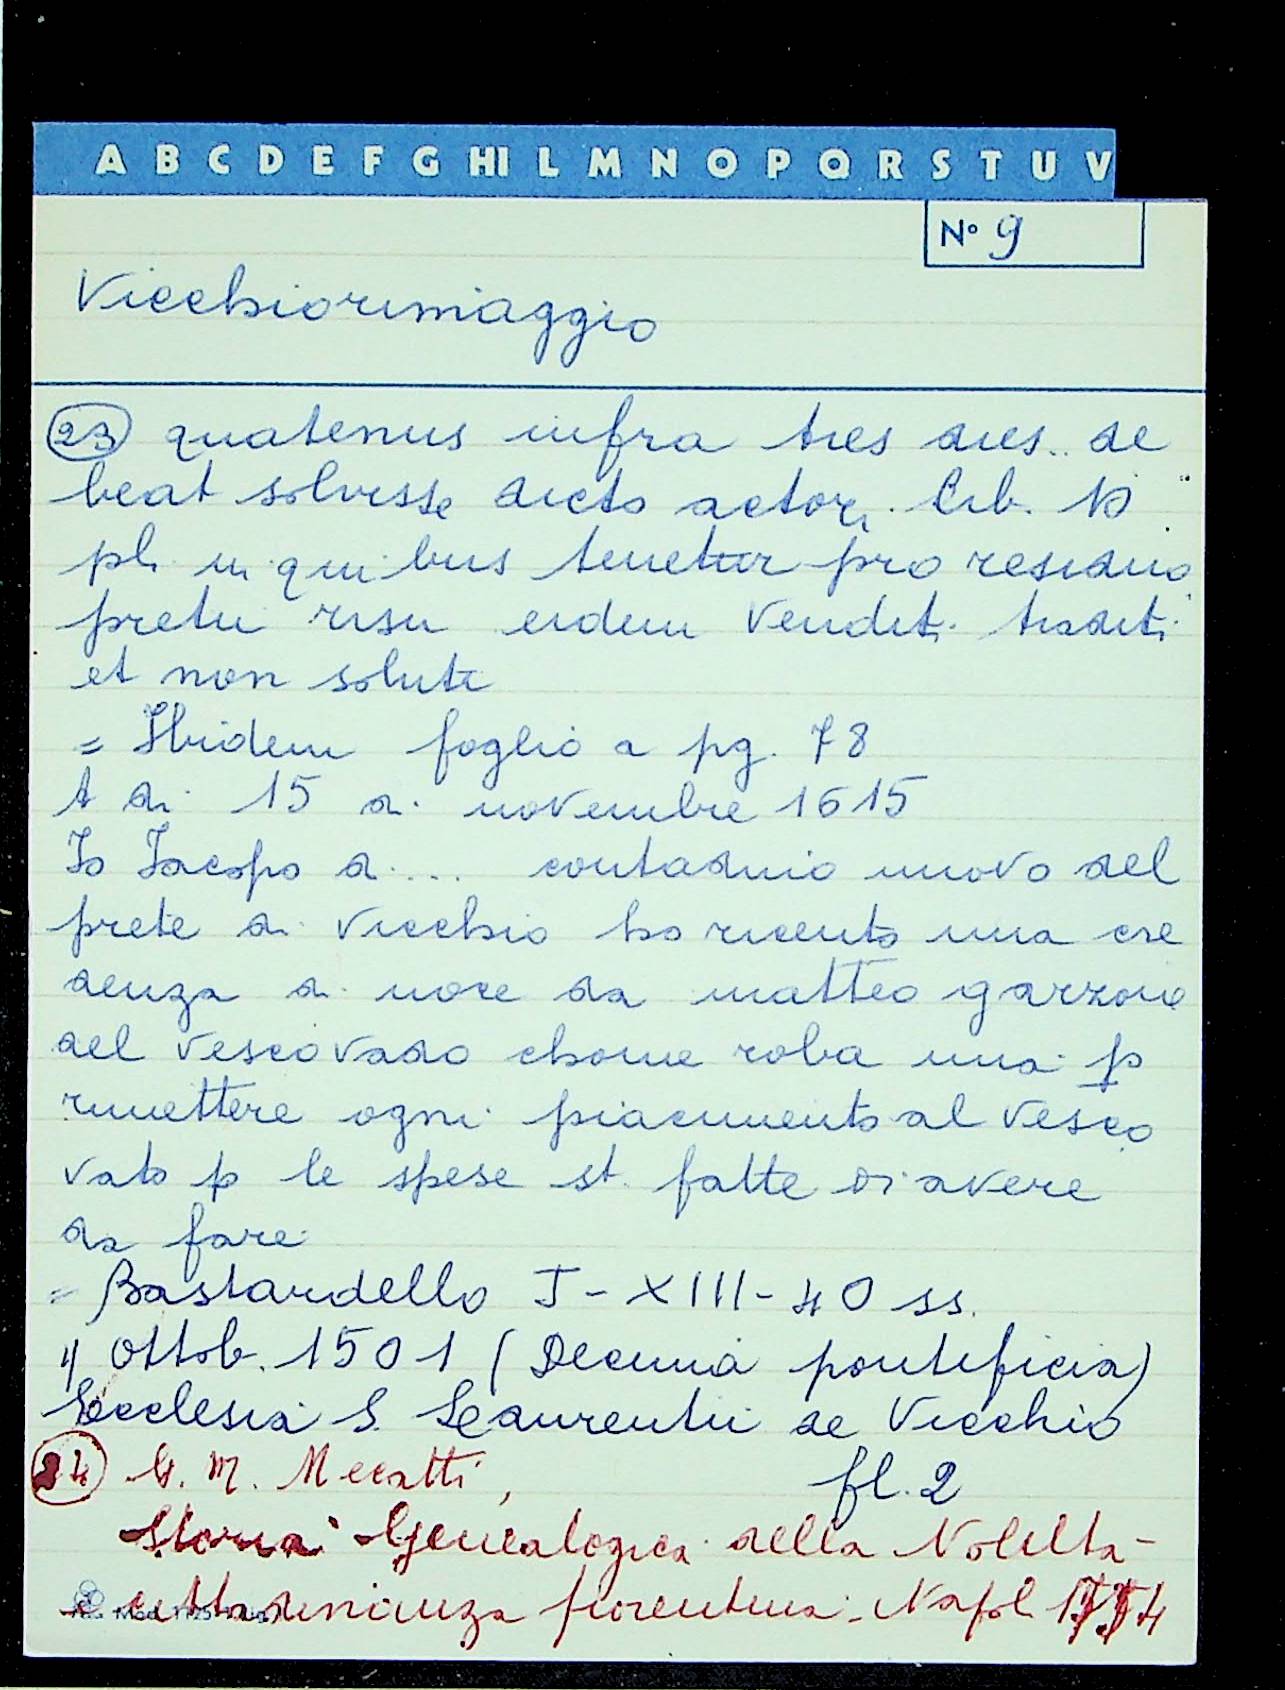 A B C D E F G HI L M N O P Q R S T U V
N° 9
Vicchiorimaggio
23 quatenus infra tres dies .. de
beat solvisse dicto actori. Lib. 10
pl. in quibus tenetur pro residuo
pretii risii eidem vendit. tradit.
et non soluti
= Ibidem foglio a pg. 78
A di 15 di novembre 1615
Io Jacopo di .... contadino nuovo del
prete di Vicchio ho riceuto una cre
denza di noce da matteo garzone
del vescovado chome roba una p
rimettere ogni piacimento al vesco
vato p le spese st. fatte di avere
da fare
= Bastardello I - XIII - 40 ss.
4 Ottob. 1501 (Decima pontificia)
Ecclesia S. Laurentii de Vicchio
fl. 2
24 G. M. Mecatti,
Storia Genealogica della Nobilta
e cittadinanza fiorentina. Napol. 1754